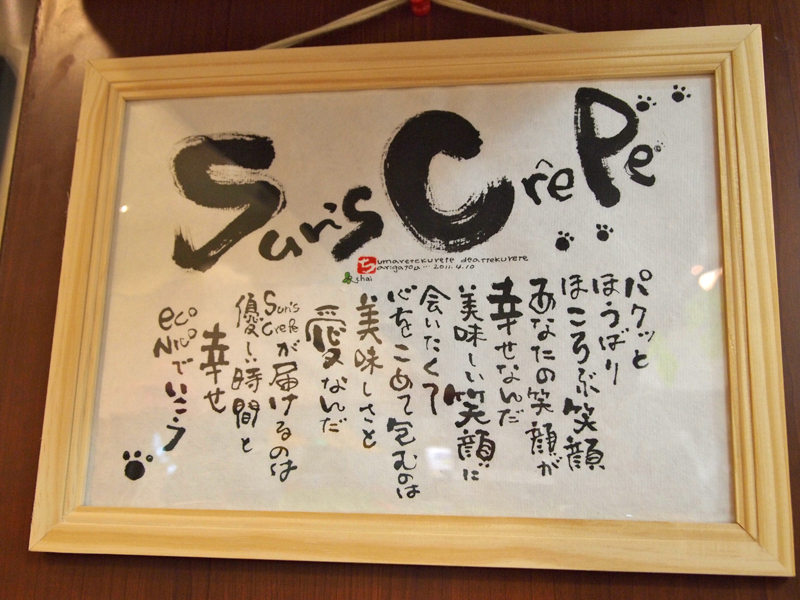 Suri's CrêPe
Sumaretekurete deattekurete
arigatou… 2011.4.10
ち
& chai
パクッと
ほうばり
ほころぶ笑顔
あなたの笑顔が
幸せなんだ
美味しい笑顔に
会いたくて
心をこめて包むのは
美味しさと
愛なんだ
Suri's CrePeが届けるのは
優しい時間と
幸せ
eco Nicoでいこう